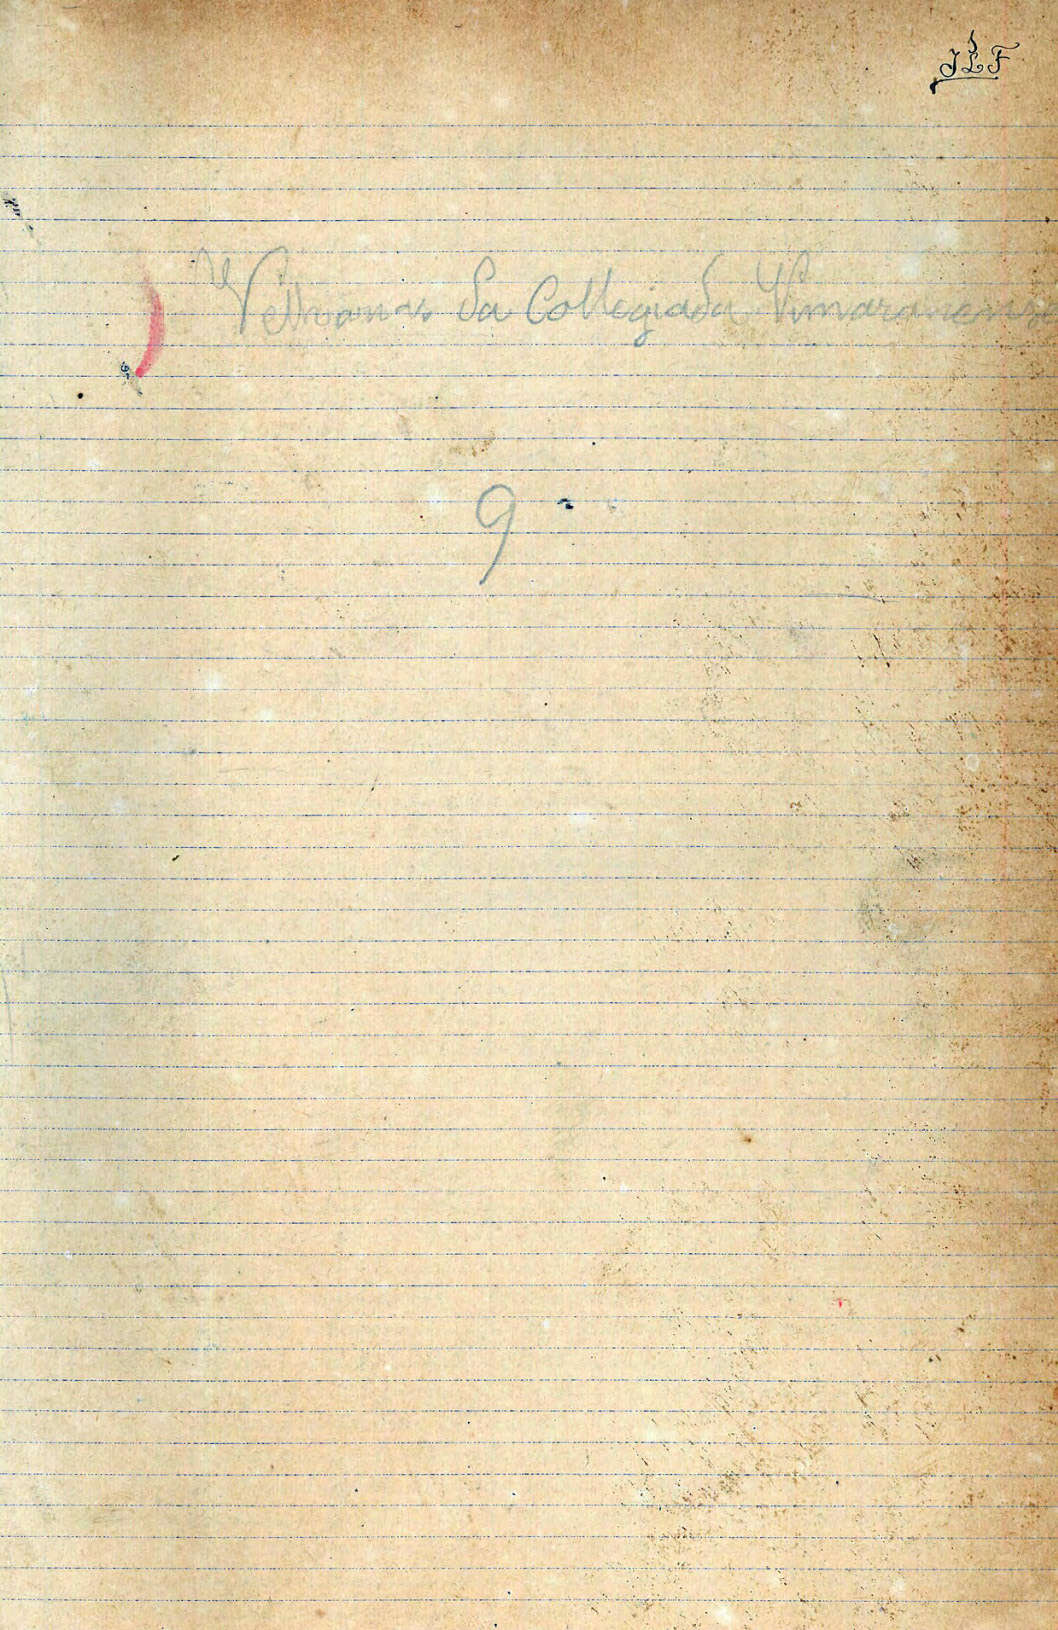 JLF
Velharias da Collegiada Vimaranense
9